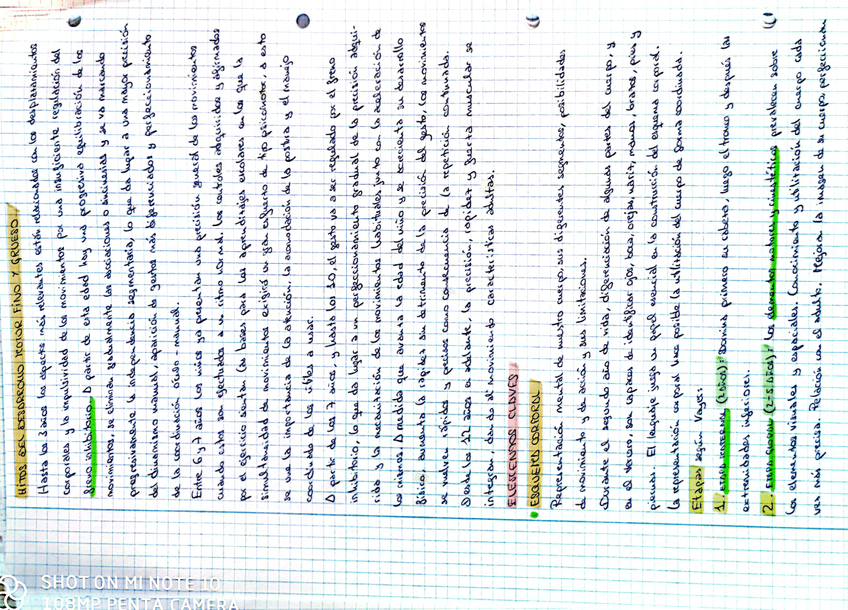 HITOS DEL DESARROLLO MOTOR FINO Y GRUESO
Hasta los 3 años los aspectos más relevantes están relacionados con los desplazamientos
corporales y la impulsividad de los movimientos por una insuficiente regulación del
freno inhibitorio. A partir de esta edad hay una progresiva equilibración de los
movimientos, se eliminan gradualmente las asociaciones o sincinesias y se va marcando
progresivamente la independencia segmentaria, lo que da lugar a una mayor precisión
del dinamismo manual, aparición de gestos más diferenciados y perfeccionamiento
de la coordinación óculo-manual.
Entre 6 y 7 años los niños ya presentan una precisión general de los movimientos
cuando estos son ejecutados a un ritmo normal. Los controles adquiridos y afirmados
por el ejercicio sientan las bases para los aprendizajes escolares en los que la
simultaneidad de movimientos exigirá un gran esfuerzo de tipo psicomotor, a esto
se une la importancia de la atención, la acomodación de la postura y el manejo
coordinado de los útiles a usar.
A partir de los 7 años, y hasta los 10, el gesto va a ser regulado por el freno
inhibitorio, lo que da lugar a un perfeccionamiento gradual de la precisión adqui-
rida y la mecanización de los movimientos habituales junto con la aceleración de
los mismos. A medida que avanza la edad del niño y se incrementa su desarrollo
físico, aumenta la rapidez sin detrimento de la precisión del gesto, los movimientos
se vuelven rápidos y precisos como consecuencia de la repetición continuada.
Desde los 12 años en adelante, la precisión, rapidez y fuerza muscular se
integran, dando al movimiento características adultas.
ELEMENTOS CLAVES
• ESQUEMA CORPORAL
Representación mental de nuestro cuerpo, sus diferentes segmentos, posibilidades
de movimiento y de acción y sus limitaciones.
Durante el segundo año de vida, diferenciación de algunas partes del cuerpo, y
en el tercero, son capaces de identificar ojos, boca, orejas, nariz, manos, brazos, pies y
piernas. El lenguaje juega un papel esencial en la construcción del esquema corporal.
La representación corporal hace posible la utilización del cuerpo de forma coordinada.
Etapas según Vayer:
1. ETAPA MATERNAL (2 años): domina primero su cabeza, luego el tronco y después las
extremidades inferiores.
2. ETAPA GLOBAL (2-5 años): los elementos motores y cinestéticos prevalecen sobre
los elementos visuales y espaciales. Conocimiento y utilización del cuerpo cada
vez más precisa. Relación con el adulto. Mejoran la imagen de su cuerpo perfeccionan
SHOT ON MI NOTE 10
108MP PENTA CAMERA